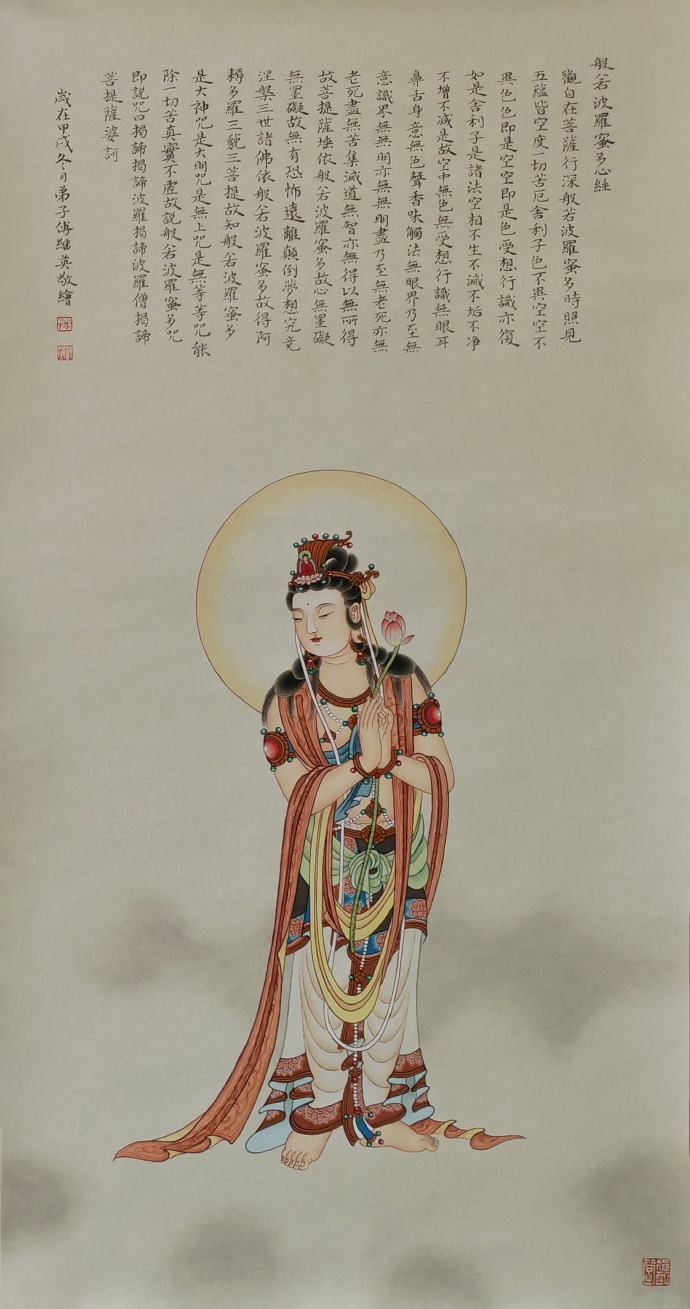 般若波羅蜜多心經
觀自在菩薩行深般若波羅蜜多時照見
五蘊皆空度一切苦厄舍利子色不異空空不
異色色即是空空即是色受想行識亦復
如是舍利子是諸法空相不生不滅不垢不净
不增不减是故空中無色無受想行識無眼耳
鼻舌身意無色聲香味觸法無眼界乃至無
意識界無無明亦無無明盡乃至無老死亦無
老死盡無苦集滅道無智亦無得以無所得
故菩提薩埵依般若波羅蜜多故心無罣礙
無罣礙故無有恐怖遠離顛倒夢想究竟
涅槃三世諸佛依般若波羅蜜多故得阿
耨多羅三藐三菩提故知般若波羅蜜多
是大神咒是大明咒是無上咒是無等等咒能
除一切苦真實不虛故説般若波羅蜜多咒
即説咒曰揭諦揭諦波羅揭諦波羅僧揭諦
菩提薩婆訶
歲在甲戌冬月弟子傅繼英敬繪